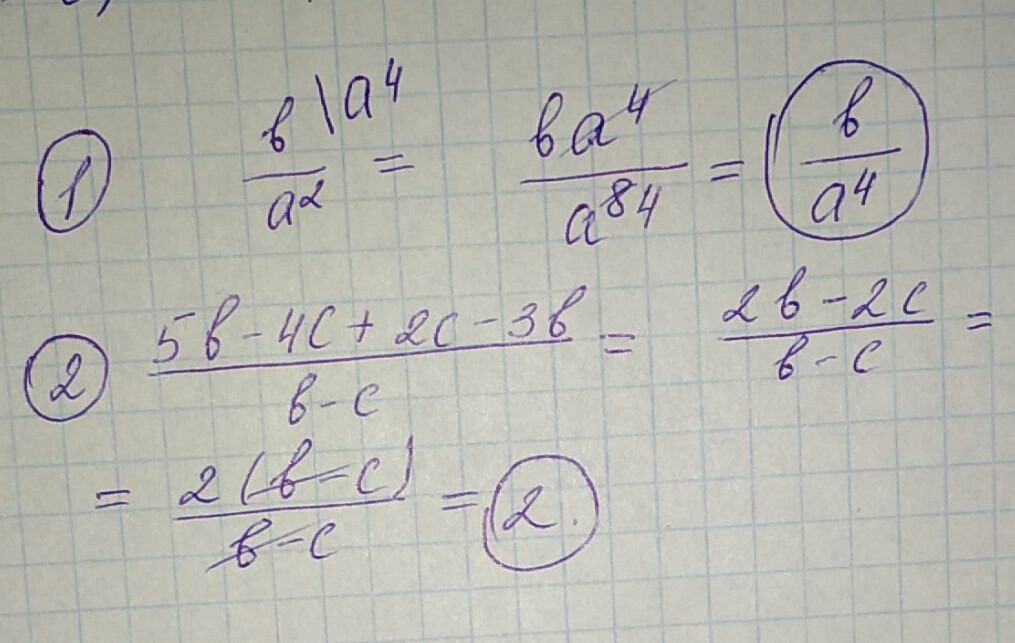 ① b/a² \a⁴ = ba⁴/a⁸ ⁴ = b/a⁴
② (5b-4c+2c-3b)/(b-c) = (2b-2c)/(b-c) =
= 2(b-c)/(b-c) = 2.